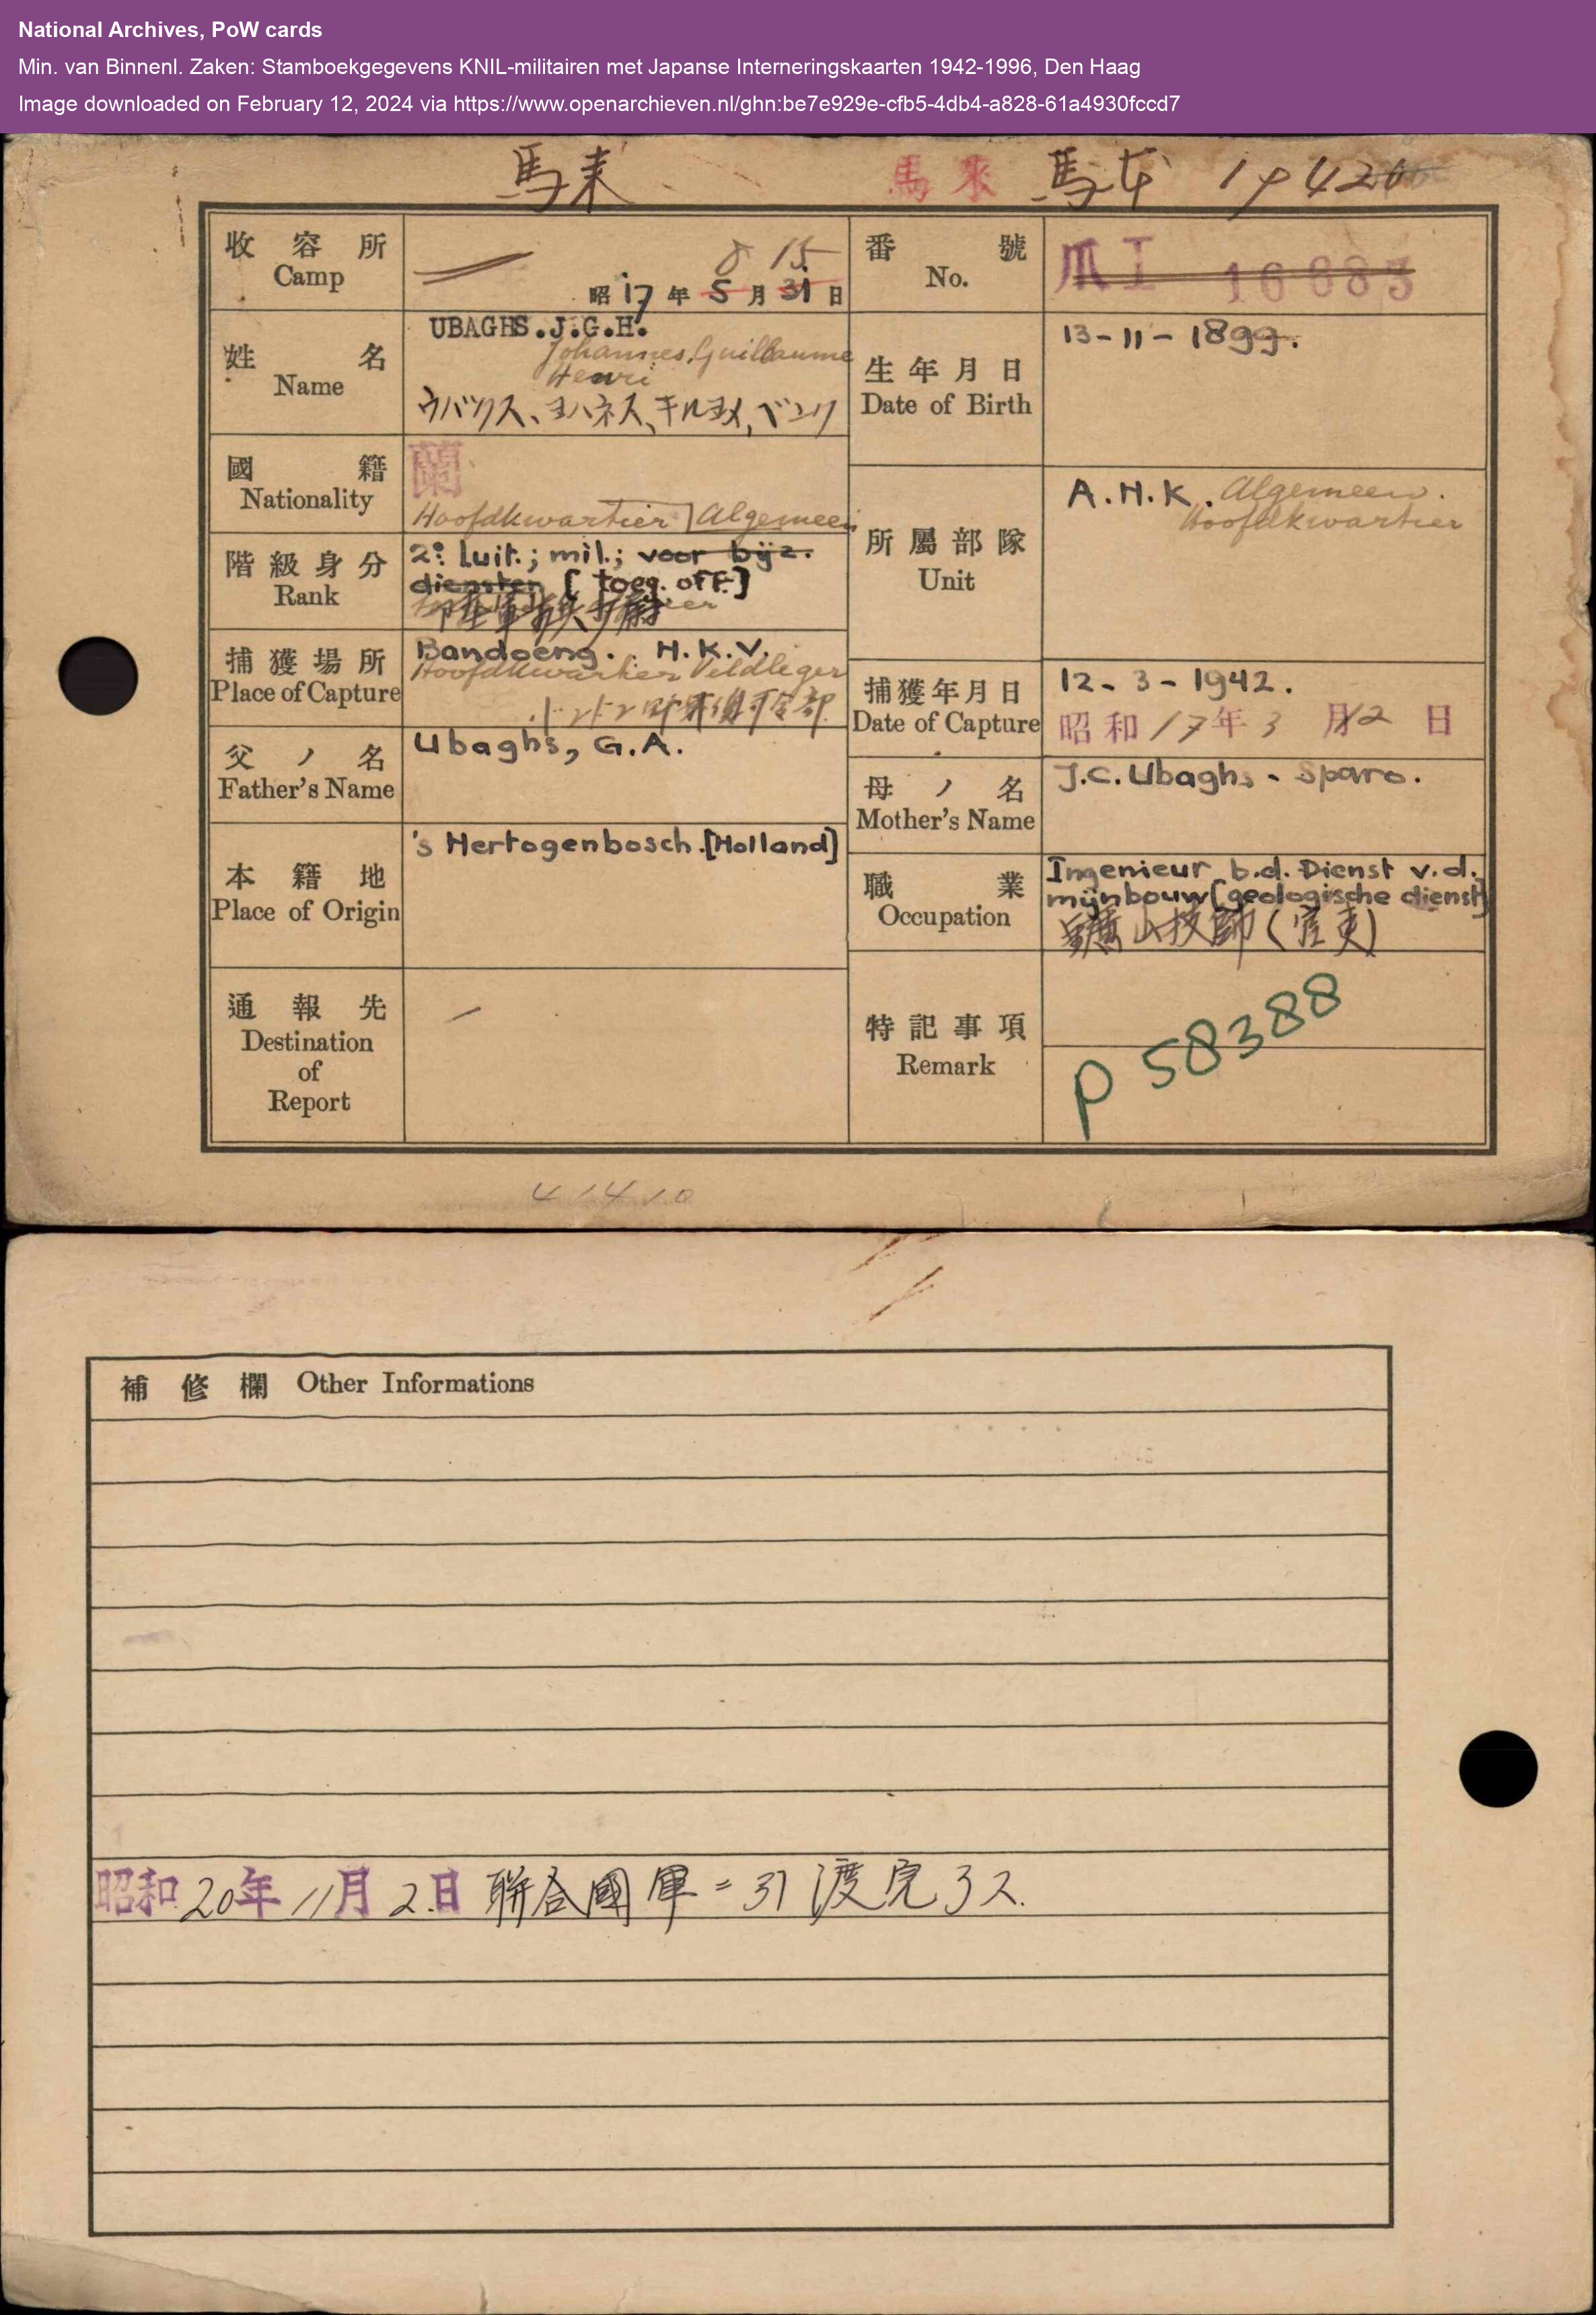 National Archives, PoW cards
Min. van Binnenl. Zaken: Stamboekgegevens KNIL-militairen met Japanse Interneringskaarten 1942-1996, Den Haag
Image downloaded on February 12, 2024 via https://www.openarchieven.nl/ghn:be7e929e-cfb5-4db4-a828-61a4930fccd7
馬来 馬來 馬本 19420
收容所
Camp
8 15
昭17年5月31日
番號
No.
爪I 16683
姓名
Name
UBAGHS.J.G.H.
Johannes, Guillaume
Henri
ウバツクス、ヨハネス、キルヨメ、ベンリ
生年月日
Date of Birth
13-11-1899.
國籍
Nationality
蘭
Hoofdkwartier Algemeen
階級身分
Rank
2e Luit.; mil.; voor bijz.
diensten [toeg. off.]
所屬部隊
Unit
A.H.K. Algemeen.
Hoofdkwartier
捕獲場所
Place of Capture
Bandoeng. H.K.V.
Hoofdkwartier Veldleger
捕獲年月日
Date of Capture
12-3-1942.
昭和17年3月12日
父ノ名
Father's Name
Ubaghs, G.A.
母ノ名
Mother's Name
J.C. Ubaghs - Sparo.
本籍地
Place of Origin
's Hertogenbosch.[Holland]
職業
Occupation
Ingenieur b.d. Dienst v.d.
mijnbouw[geologische dienst]
鑛山技師(官吏)
通報先
Destination
of
Report
特記事項
Remark
P 58388
41410
補修欄 Other Informations
昭和20年11月2日 聯合國軍ニ引渡完了ス.